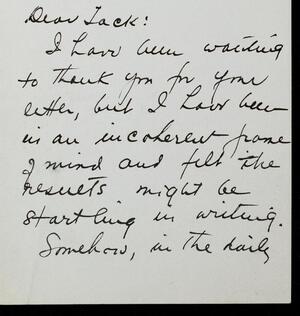 Dear Jack:
I have been waiting
to thank you for your
letter, but I have been
in an incoherent frame
of mind and felt the
results might be
startling in writing.
Somehow, in the daily